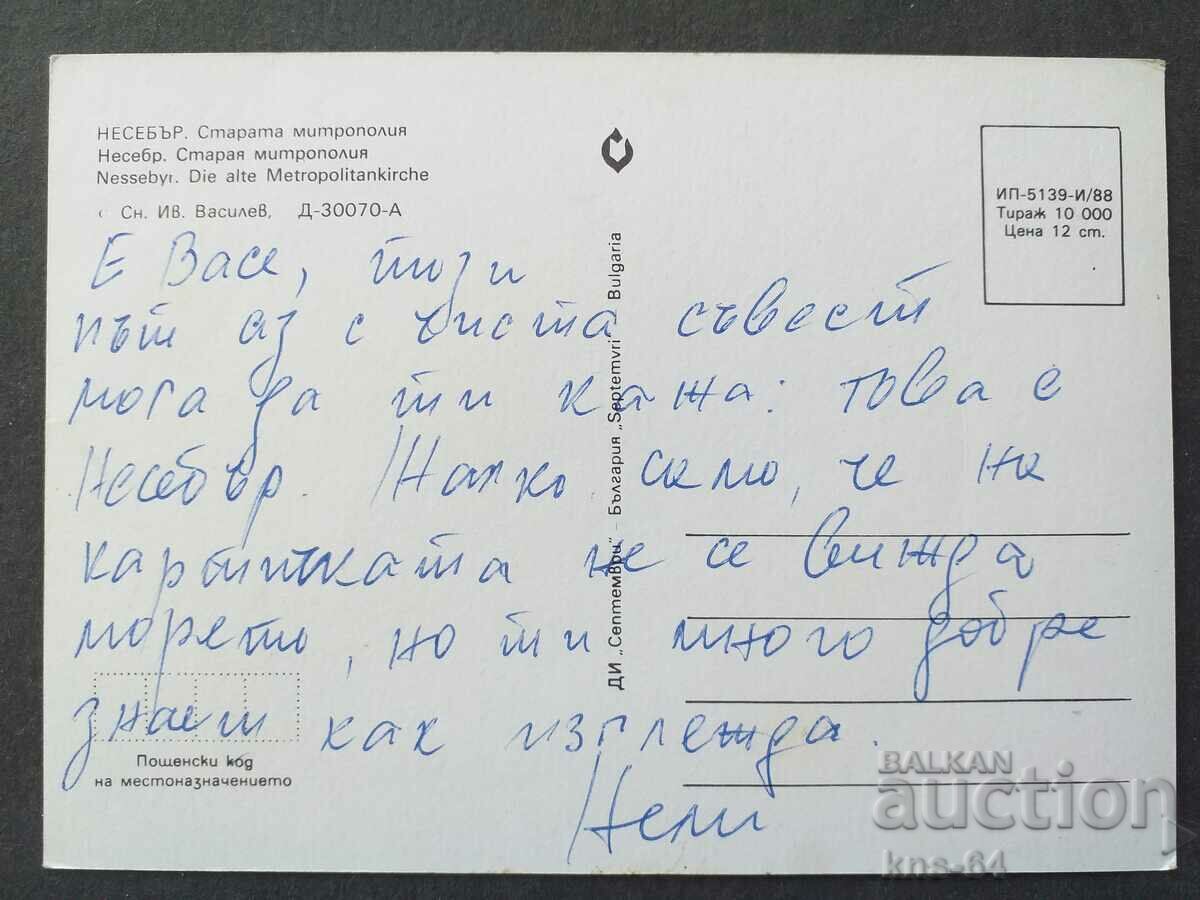 НЕСЕБЪР. Старата митрополия
Несебр. Старая митрополия
Nessebyr. Die alte Metropolitankirche
Сн. Ив. Василев, Д-30070-А
ИП-5139-И/88
Тираж 10 000
Цена 12 ст.
ДИ „Септември“ - България „Septemvri“ - Bulgaria
Е Васе, този
път аз с чиста съвест
мога да ти кажа: това е
Несебър. Жалко само, че на
картичката не се вижда
морето, но ти много добре
знаеш как изглежда.
Нели
Пощенски код
на местоназначението
BALKAN
auction
kns-64